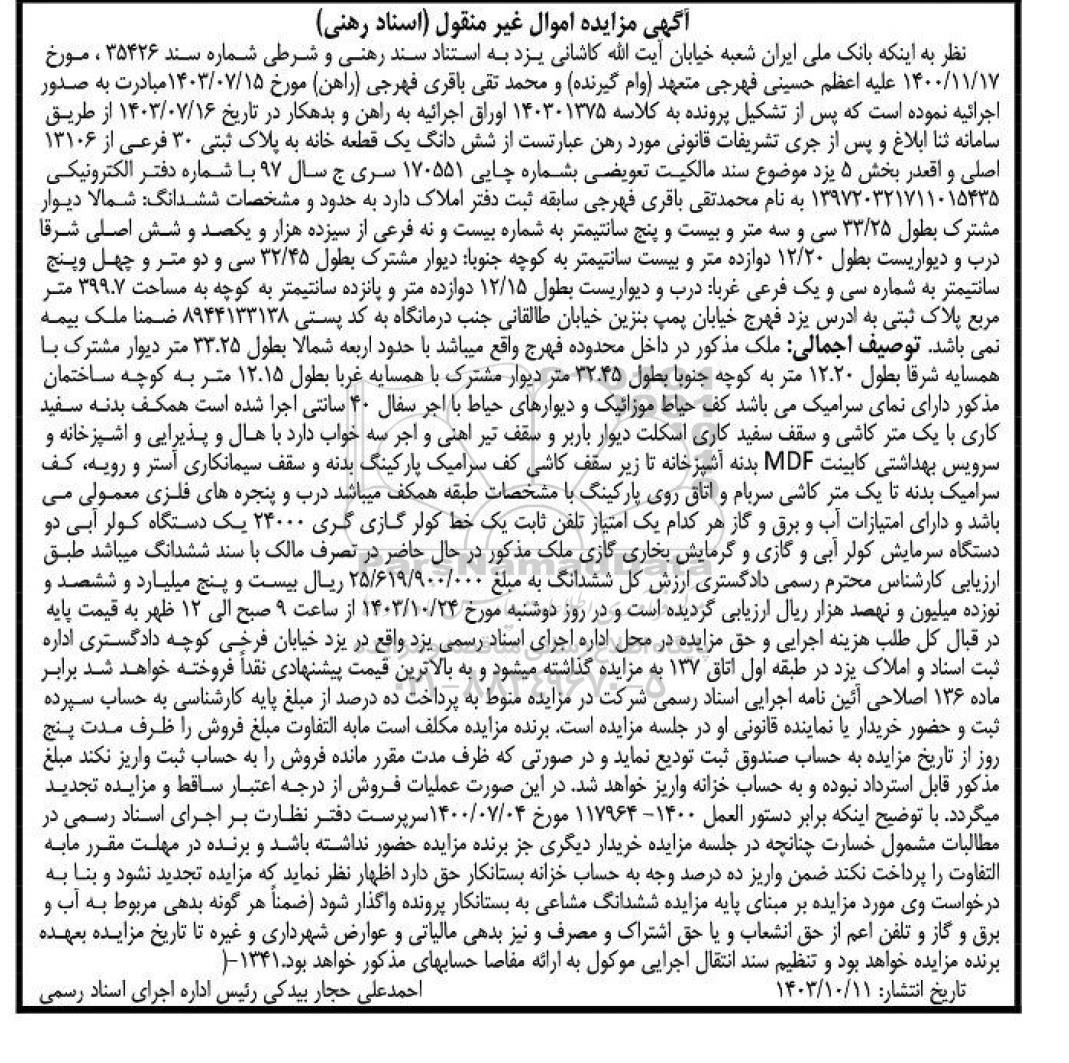 آگهی مزایده اموال غیر منقول (اسناد رهنی)
نظر به اینکه بانک ملی ایران شعبه خیابان آیت الله کاشانی یزد به استناد سند رهنی و شرطی شماره سند ۳۵۴۲۶ ، مورخ
۱۴۰۰/۱۱/۱۷ علیه اعظم حسینی فهرجی متعهد (وام گیرنده) و محمد تقی باقری فهرجی (راهن) مورخ ۱۴۰۳/۰۷/۱۵مبادرت به صدور
اجرائیه نموده است که پس از تشکیل پرونده به کلاسه ۱۴۰۳۰۱۳۷۵ اوراق اجرائیه به راهن و بدهکار در تاریخ ۱۴۰۳/۰۷/۱۶ از طریق
سامانه ثنا ابلاغ و پس از جری تشریفات قانونی مورد رهن عبارتست از شش دانگ یک قطعه خانه به پلاک ثبتی ۳۰ فرعی از ۱۳۱۰۶
اصلی و اقعدر بخش ۵ یزد موضوع سند مالکیت تعویضی بشماره چاپی ۱۷۰۵۵۱ سری ج سال ۹۷ با شماره دفتر الکترونیکی
۱۳۹۷۲۰۳۲۱۷۱۱۰۱۵۴۳۵ به نام محمدتقی باقری فهرجی سابقه ثبت دفتر املاک دارد به حدود و مشخصات ششدانگ: شمالا دیوار
مشترک بطول ۳۳/۲۵ سی و سه متر و بیست و پنج سانتیمتر به شماره بیست و نه فرعی از سیزده هزار و یکصد و شش اصلی شرقا
درب و دیواریست بطول ۱۲/۲۰ دوازده متر و بیست سانتیمتر به کوچه جنوبا: دیوار مشترک بطول ۳۲/۴۵ سی و دو متر و چهل وپنج
سانتیمتر به شماره سی و یک فرعی غربا: درب و دیواریست بطول ۱۲/۱۵ دوازده متر و پانزده سانتیمتر به کوچه به مساحت ۳۹۹.۷ متر
مربع پلاک ثبتی به ادرس یزد فهرج خیابان پمپ بنزین خیابان طالقانی جنب درمانگاه به کد پستی ۸۹۴۴۱۳۳۱۳۸ ضمنا ملک بیمه
نمی باشد. توصیف اجمالی: ملک مذکور در داخل محدوده فهرج واقع میباشد با حدود اربعه شمالا بطول ۳۳.۲۵ متر دیوار مشترک با
همسایه شرقا بطول ۱۲.۲۰ متر به کوچه جنوبا بطول ۳۲.۴۵ متر دیوار مشترک با همسایه غربا بطول ۱۲.۱۵ متر به کوچه ساختمان
مذکور دارای نمای سرامیک می باشد کف حیاط موزائیک و دیوارهای حیاط با اجر سفال ۴۰ سانتی اجرا شده است همکف بدنه سفید
کاری با یک متر کاشی و سقف سفید کاری اسکلت دیوار باربر و سقف تیر اهنی و اجر سه خواب دارد با هال و پذیرایی و اشپزخانه و
سرویس بهداشتی کابینت MDF بدنه آشپزخانه تا زیر سقف کاشی کف سرامیک پارکینگ بدنه و سقف سیمانکاری آستر و رویه، کف
سرامیک بدنه تا یک متر کاشی سربام و اتاق روی پارکینگ با مشخصات طبقه همکف میباشد درب و پنجره های فلزی معمولی می
باشد و دارای امتیازات آب و برق و گاز هر کدام یک امتیاز تلفن ثابت یک خط کولر گازی گری ۲۴۰۰۰ یک دستگاه کولر آبی دو
دستگاه سرمایش کولر آبی و گازی و گرمایش بخاری گازی ملک مذکور در حال حاضر در تصرف مالک با سند ششدانگ میباشد طبق
ارزیابی کارشناس محترم رسمی دادگستری ارزش کل ششدانگ به مبلغ ۲۵/۶۱۹/۹۰۰/۰۰۰ ریال بیست و پنج میلیارد و ششصد و
نوزده میلیون و نهصد هزار ریال ارزیابی گردیده است و در روز دوشنبه مورخ ۱۴۰۳/۱۰/۲۴ از ساعت ۹ صبح الی ۱۲ ظهر به قیمت پایه
در قبال کل طلب هزینه اجرایی و حق مزایده در محل اداره اجرای اسناد رسمی یزد واقع در یزد خیابان فرخی کوچه دادگستری اداره
ثبت اسناد و املاک یزد در طبقه اول اتاق ۱۳۷ به مزایده گذاشته میشود و به بالاترین قیمت پیشنهادی نقداً فروخته خواهد شد برابر
ماده ۱۳۶ اصلاحی آئین نامه اجرایی اسناد رسمی شرکت در مزایده منوط به پرداخت ده درصد از مبلغ پایه کارشناسی به حساب سپرده
ثبت و حضور خریدار یا نماینده قانونی او در جلسه مزایده است. برنده مزایده مکلف است مابه التفاوت مبلغ فروش را ظرف مدت پنج
روز از تاریخ مزایده به حساب صندوق ثبت تودیع نماید و در صورتی که ظرف مدت مقرر مانده فروش را به حساب ثبت واریز نکند مبلغ
مذکور قابل استرداد نبوده و به حساب خزانه واریز خواهد شد. در این صورت عملیات فروش از درجه اعتبار ساقط و مزایده تجدید
میگردد. با توضیح اینکه برابر دستور العمل ۱۴۰۰- ۱۱۷۹۶۴ مورخ ۱۴۰۰/۰۷/۰۴سرپرست دفتر نظارت بر اجرای اسناد رسمی در
مطالبات مشمول خسارت چنانچه در جلسه مزایده خریدار دیگری جز برنده مزایده حضور نداشته باشد و برنده در مهلت مقرر مابه
التفاوت را پرداخت نکند ضمن واریز ده درصد وجه به حساب خزانه بستانکار حق دارد اظهار نظر نماید که مزایده تجدید نشود و بنا به
درخواست وی مورد مزایده بر مبنای پایه مزایده ششدانگ مشاعی به بستانکار پرونده واگذار شود (ضمناً هر گونه بدهی مربوط به آب و
برق و گاز و تلفن اعم از حق انشعاب و یا حق اشتراک و مصرف و نیز بدهی مالیاتی و عوارض شهرداری و غیره تا تاریخ مزایده بعهده
برنده مزایده خواهد بود و تنظیم سند انتقال اجرایی موکول به ارائه مفاصا حسابهای مذکور خواهد بود.۱۳۴۱-(
تاریخ انتشار: ۱۴۰۳/۱۰/۱۱ احمدعلی حجار بیدکی رئیس اداره اجرای اسناد رسمی
ParsNamadData